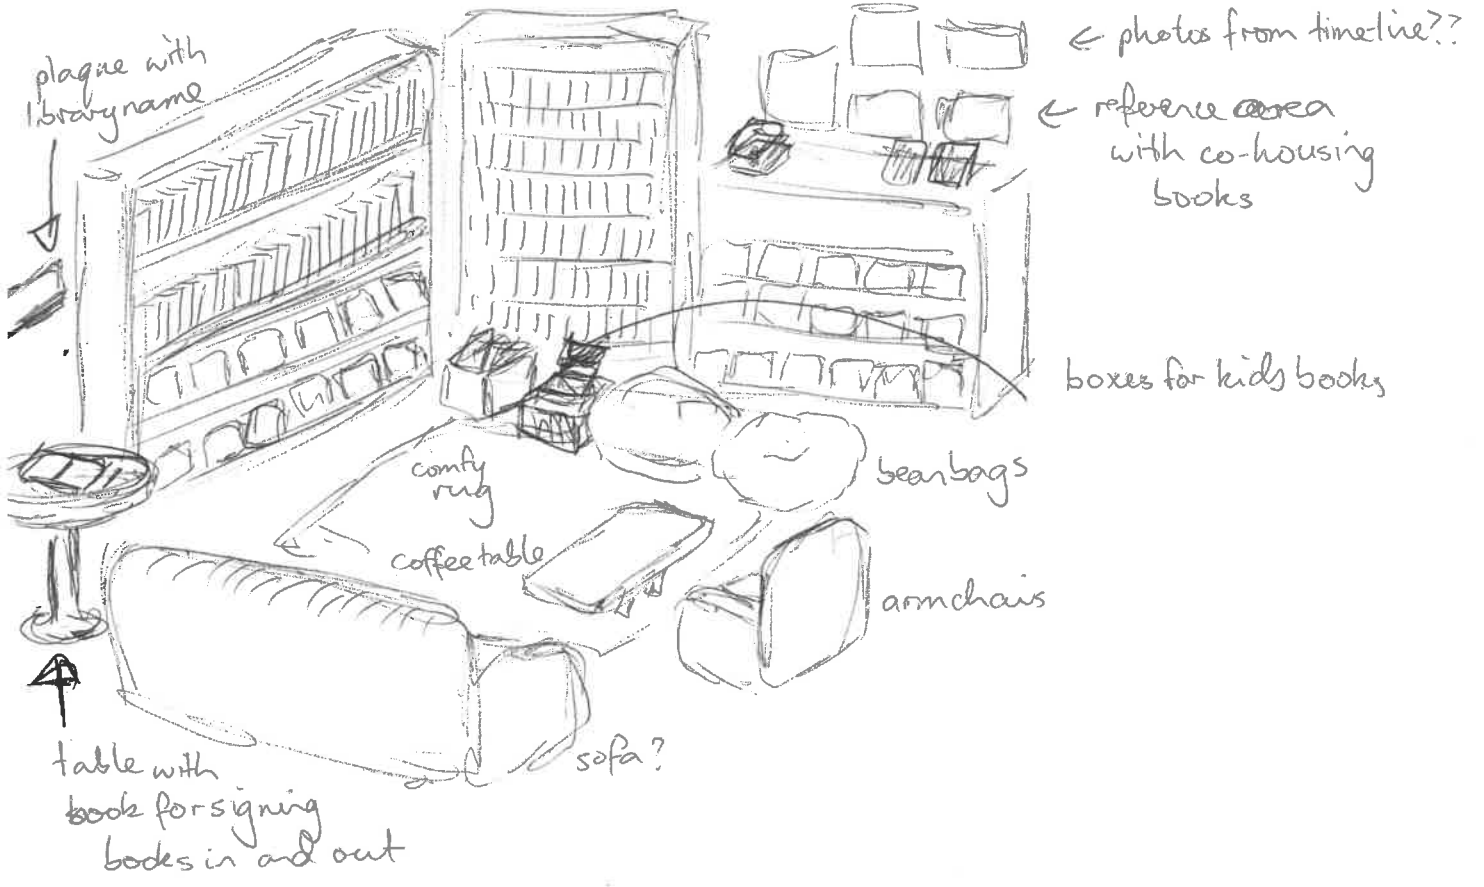 plaque with
library name
← photos from timeline??
← reference area
with co-housing
books
boxes for kids books
comfy
rug
beanbags
coffee table
armchairs
sofa?
table with
book for signing
books in and out